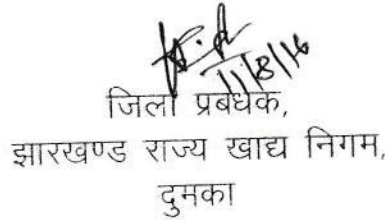 11/8/16
जिला प्रबंधक,
झारखण्ड राज्य खाद्य निगम,
दुमका